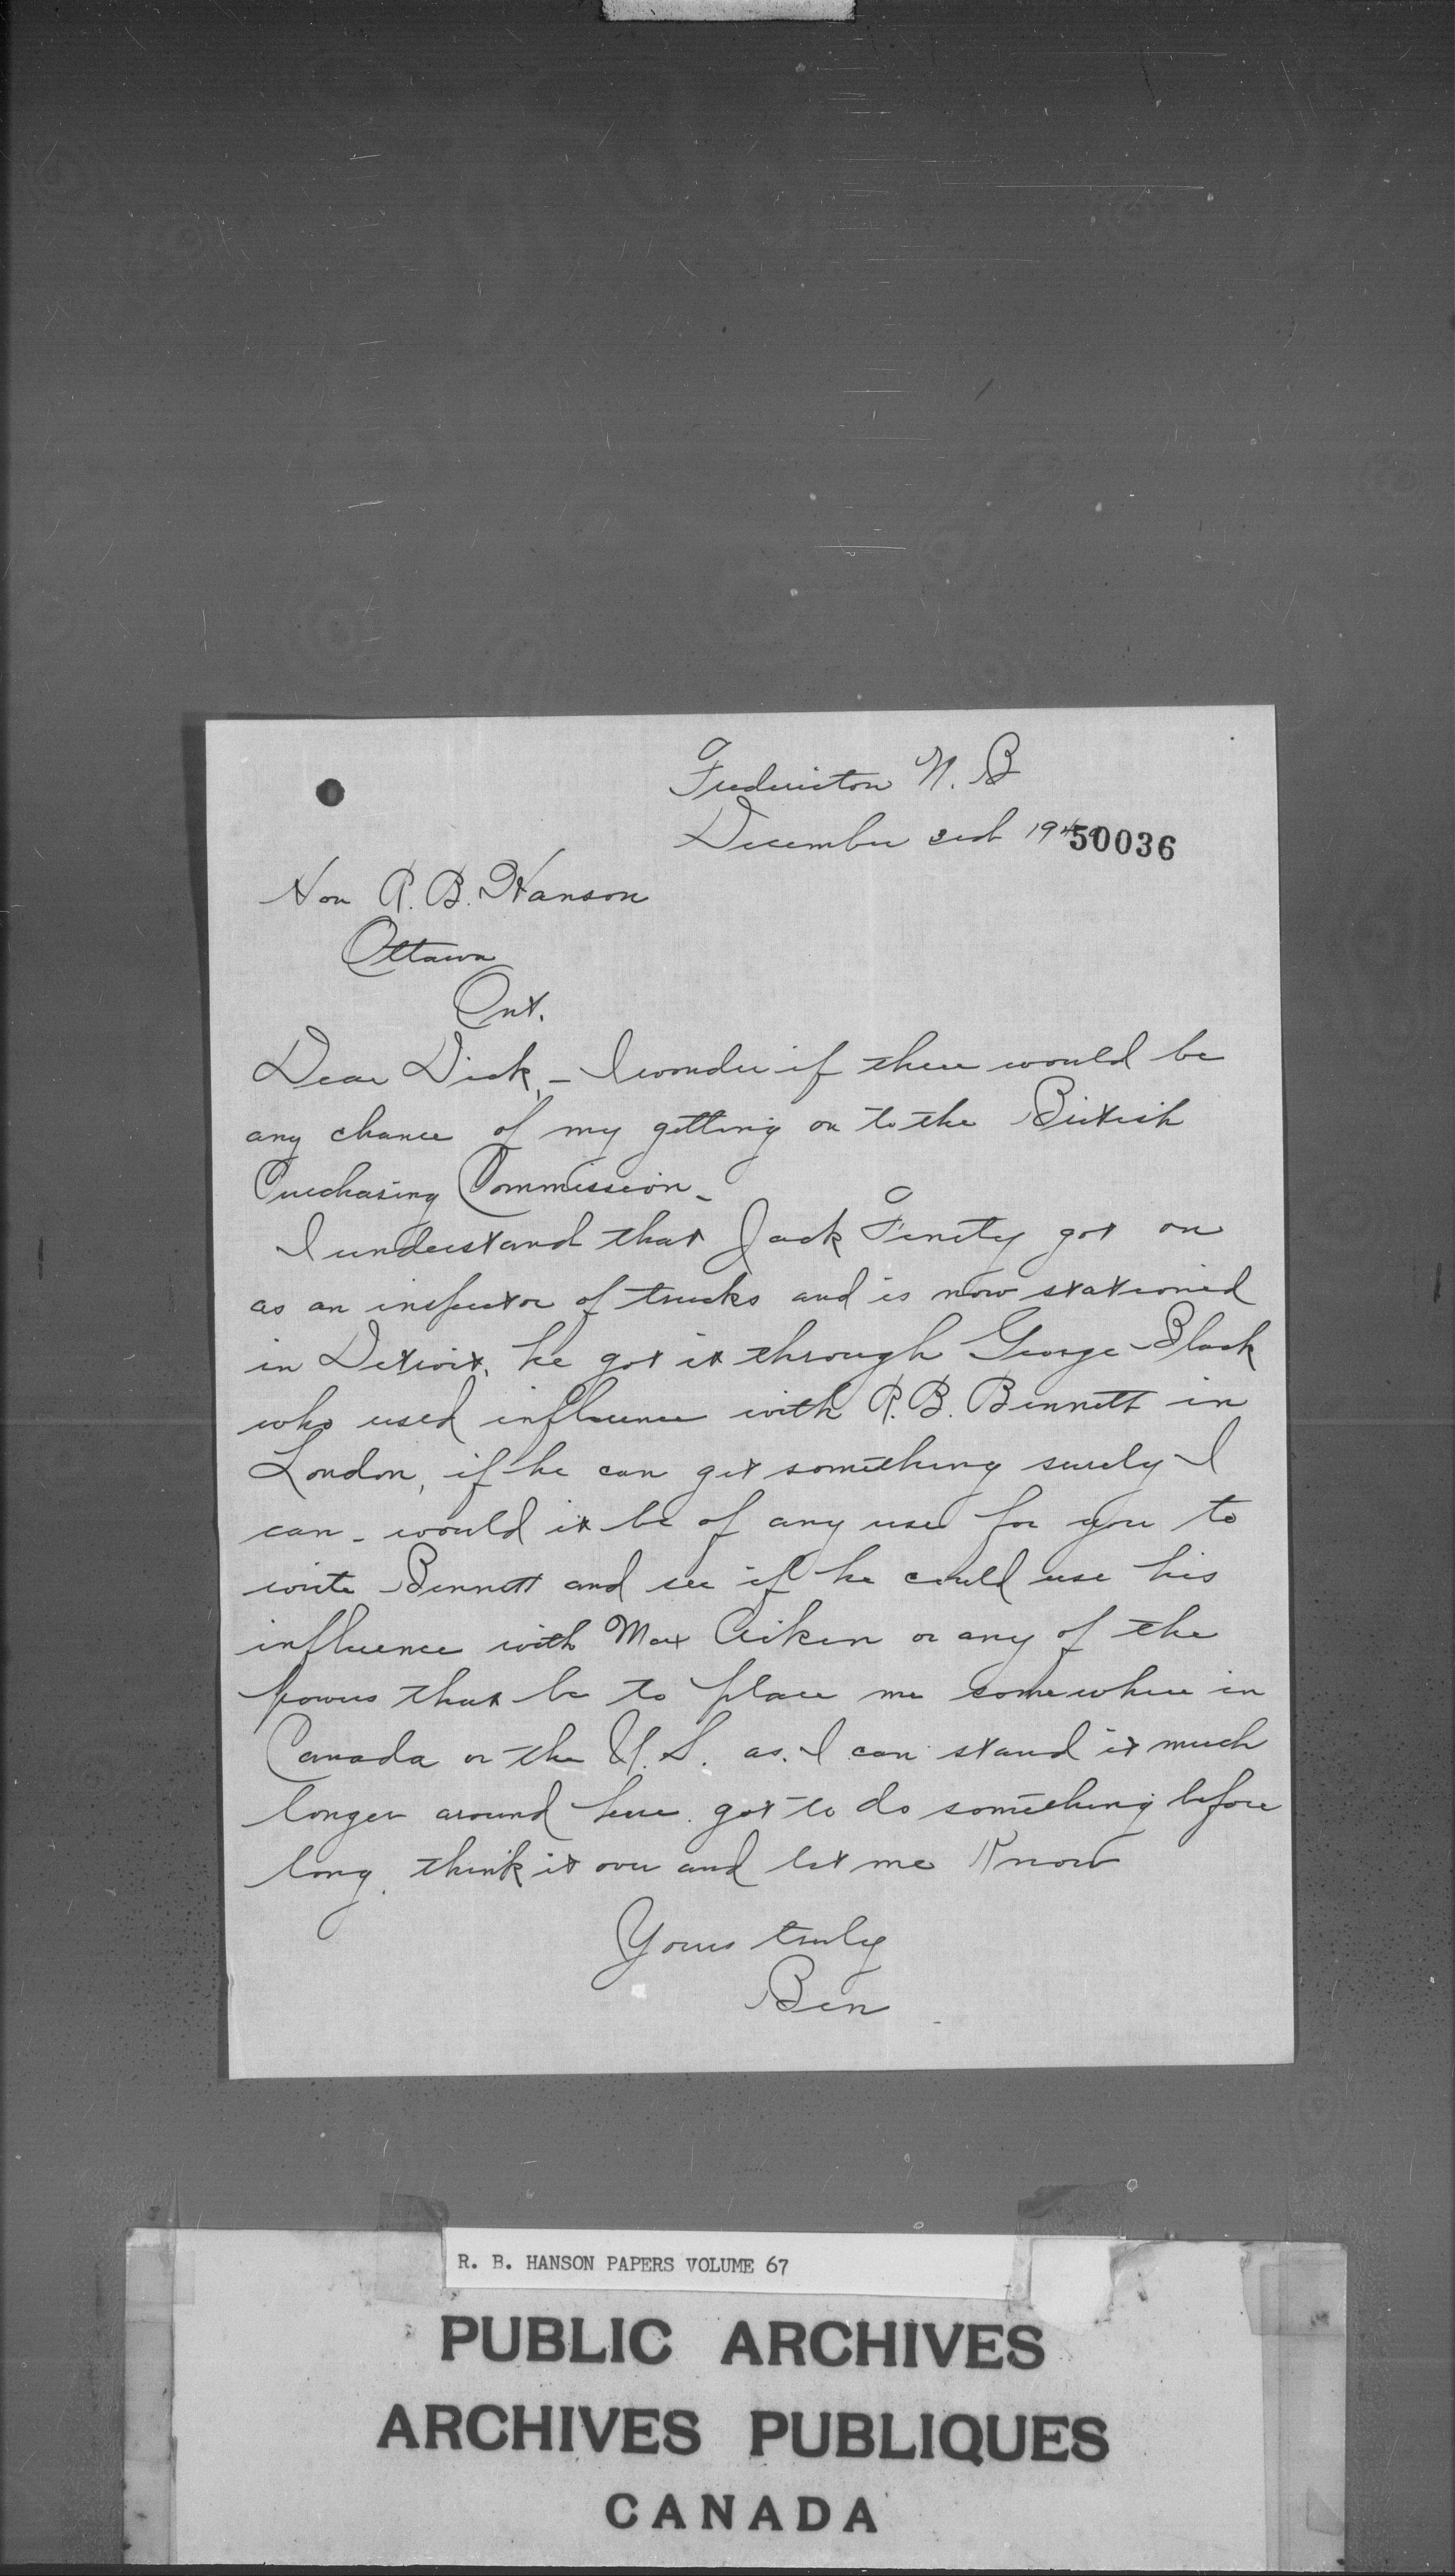 Fredericton N. B
December 3rd 194
50036
Hon R. B. Hanson
Ottawa
Ont.
Dear Dick, - I wonder if there would be
any chance of my getting on to the British
Purchasing Commission -
I understand that Jack Fenety got on
as an inspector of trucks and is now stationed
in Detroit, he got it through George Black
who used influence with R. B. Bennett in
London, if he can get something surely I
can - would it be of any use for you to
write Bennett and see if he could use his
influence with Max Aiken or any of the
powers that be to place me somewhere in
Canada or the U. S. as. I can stand it much
longer around here. got to do something before
long. think it over and let me Know
Yours truly
Ben
R. B. HANSON PAPERS VOLUME 67
PUBLIC ARCHIVES
ARCHIVES PUBLIQUES
CANADA